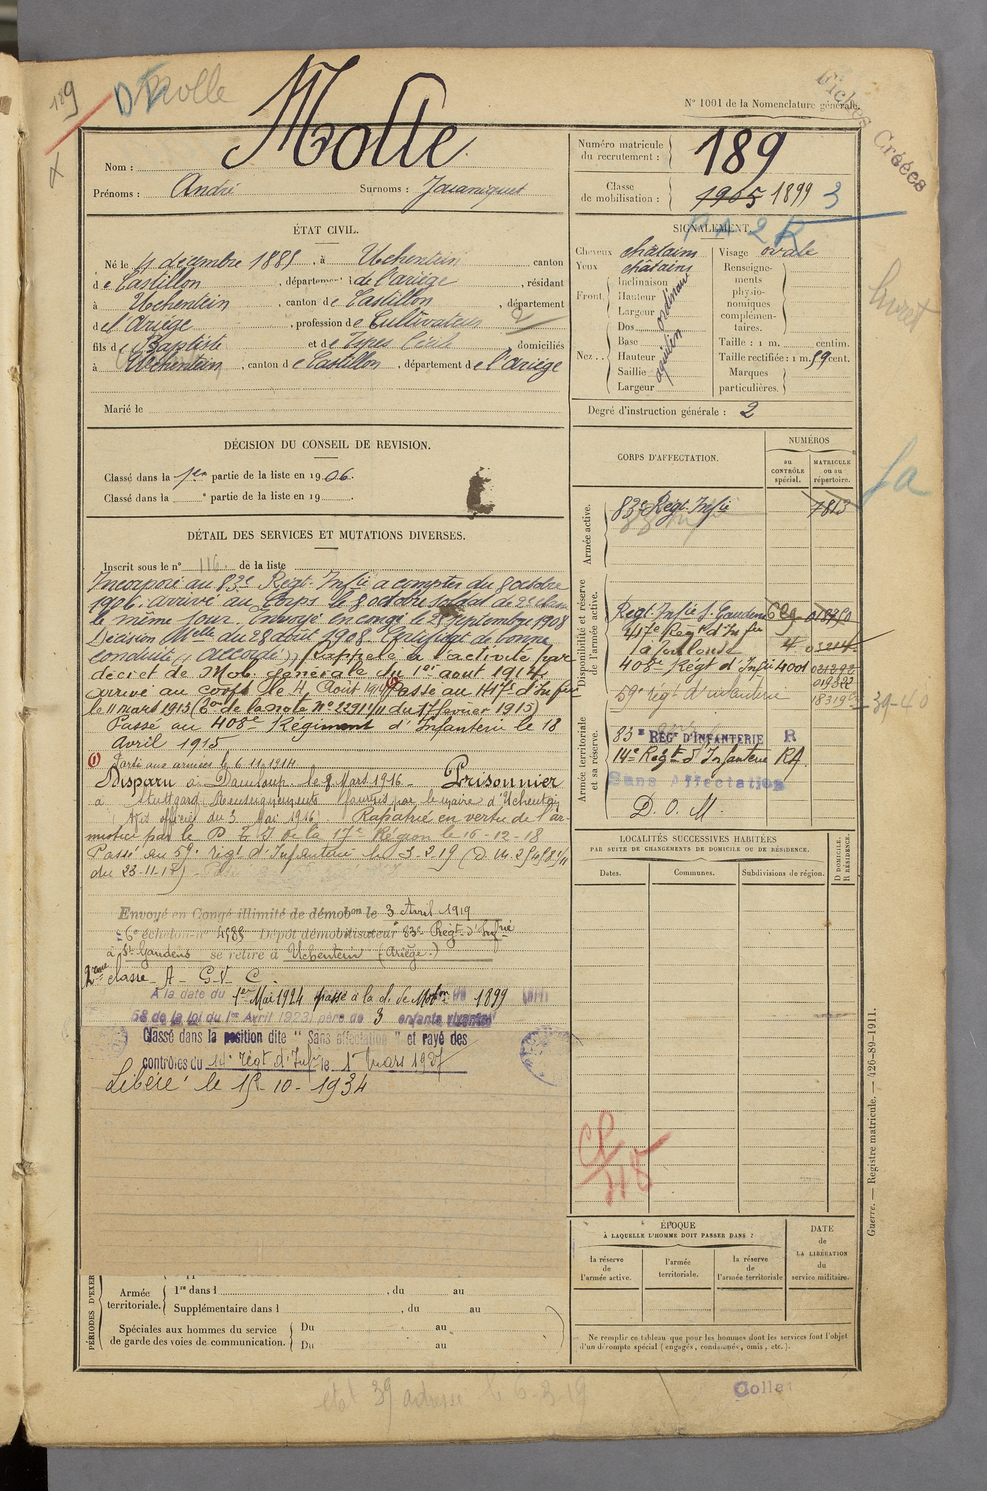 189
Molle
N° 1001 de la Nomenclature générale.
Clichés Créées
Nom : Molle
Prénoms : André Surnoms :
Numéro matricule du recrutement : 189
Classe de mobilisation : 1905 1899 3
ÉTAT CIVIL.
Né le 4 décembre 1885, à Uchentein canton
de Castillon, département de l'Ariège, résidant
à Uchentein, canton de Castillon, département
de l'Ariège, profession de Cultivateur
fils de Baptiste et de domiciliés
à Uchentein, canton de Castillon, département de l'Ariège
Marié le
SIGNALEMENT.
Cheveux châtains
Yeux châtains
Front Inclinaison Hauteur Largeur ordinaire
Nez Dos Base Hauteur Saillie Largeur aquilin
Visage ovale
Renseignements physionomiques complémentaires.
Taille : 1 m. centim.
Taille rectifiée : 1 m. 59 cent.
Marques particulières.
Degré d'instruction générale : 2
DÉCISION DU CONSEIL DE REVISION.
Classé dans la 1re partie de la liste en 1906.
Classé dans la e partie de la liste en 19
DÉTAIL DES SERVICES ET MUTATIONS DIVERSES.
Inscrit sous le n° 116 de la liste
Incorporé au 83e Régt. Infie à compter du 8 octobre
1906. arrivé au Corps le 8 octobre soldat de 2e classe
le même jour. Envoyé en congé le 25 septembre 1908
Décision Mlle du 28 août 1908. Certificat de bonne
conduite "accordé". Rappelé à l'activité par
décret de Mob. Générale du 1er août 1914,
arrivé au corps le 4 Août 1914 (1) Passé au 417e d'Infie
le 11 mars 1915 (Don de la note N° 2291 1/11 du 17 février 1915)
Passé au 408e Régiment d'Infanterie le 18
Avril 1915
(1) Parti aux armées le 6.11.1914
Disparu à Damloup le 9 Mars 1916 - Prisonnier
à Stuttgard Renseignements fournis par le maire d'Uchentein
Avis officiel du 3 Mai 1916). Rapatrié en vertu de l'ar-
mistice par le D. T. I de la 17e Région le 16-12-18
Passé au 59e régt d'Infanterie le 3-2-19
du 23-11-18)
Envoyé en Congé illimité de démobon le 3 Avril 1919
6e échelon n° 4585 Dépôt démobilisateur 83e Régt d'Infrie
à St Gaudens se retire à Uchentein (Ariège.)
2eme classe A - G.V.C.
A la date du 1er Mai 1924 passé à la cl. de Mobon de 1899 (art
58 de la loi du 1er Avril 1923) père de 3 enfants vivants
Classé dans la position dite "Sans affectation" et rayé des
contrôles du 14e régt d'Infie le 1er Mars 1927
Libéré le 15-10-1934
CORPS D'AFFECTATION.
NUMÉROS
au CONTRÔLE spécial.
MATRICULE ou au répertoire.
Armée active.
83e Régt Infie 7813
Disponibilité et réserve de l'armée active.
Régt Infie St Gaudens 629
417e Régt d'Infie
à Toulouse
408e Régt d'Infie 4001
59e régt d'infanterie
39-40
Armée territoriale et sa réserve.
83e RÉGt D'INFANTERIE R
14e Régt d'Infanterie RA
Sans Affectation
D. O. M.
LOCALITÉS SUCCESSIVES HABITÉES
PAR SUITE DE CHANGEMENTS DE DOMICILE OU DE RÉSIDENCE.
Dates. Communes. Subdivisions de région. D DOMICILE. R RÉSIDENCE.
ÉPOQUE
À LAQUELLE L'HOMME DOIT PASSER DANS :
la réserve de l'armée active.
l'armée territoriale.
la réserve de l'armée territoriale
DATE de LA LIBÉRATION du service militaire.
Ne remplir ce tableau que pour les hommes dont les services font l'objet
d'un décompte spécial (engagés, condamnés, omis, etc.).
PÉRIODES D'EXER
Armée territoriale.
1re dans l , du au
Supplémentaire dans l , du au
Spéciales aux hommes du service
de garde des voies de communication.
Du au
Du au
Guerre. — Registre matricule. — 426-89-1911.